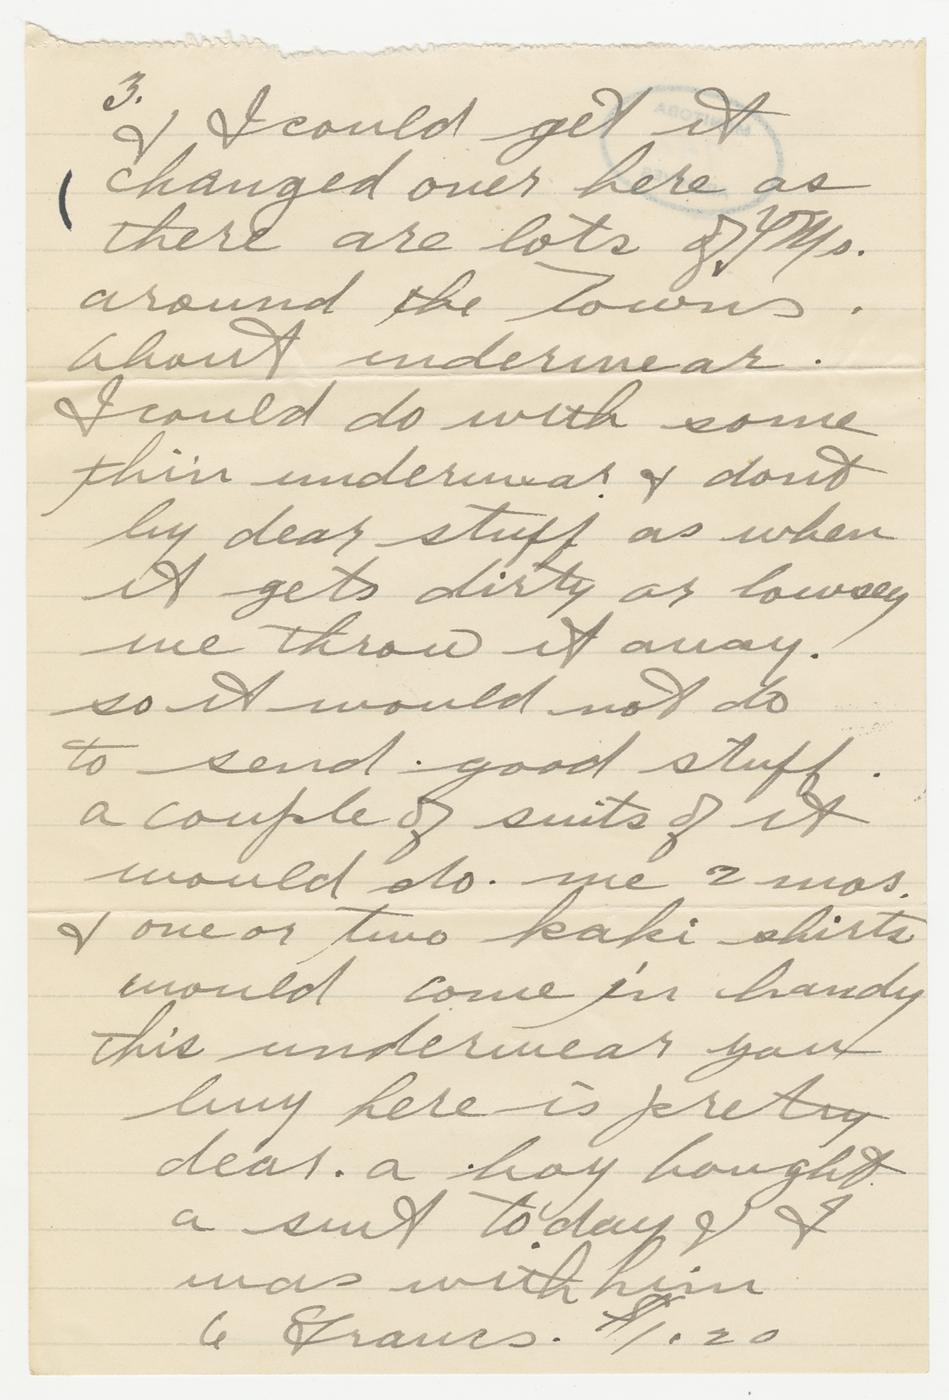 3.
& I could get it
changed over here as
there are lots of YMs.
around the Towns.
About underwear.
I could do with some
thin underwear & dont
by dear stuff as when
it gets dirty or lowsey
we throw it away.
so it would not do
to send good stuff.
a couple of suits of it
would do. me 2 mos.
& one or two kaki shirts
would come in handy
this underwear you
buy here is pretty
dear. a boy bought
a suit to day & I
was with him
6 Francs. $1.20
MANITOBA